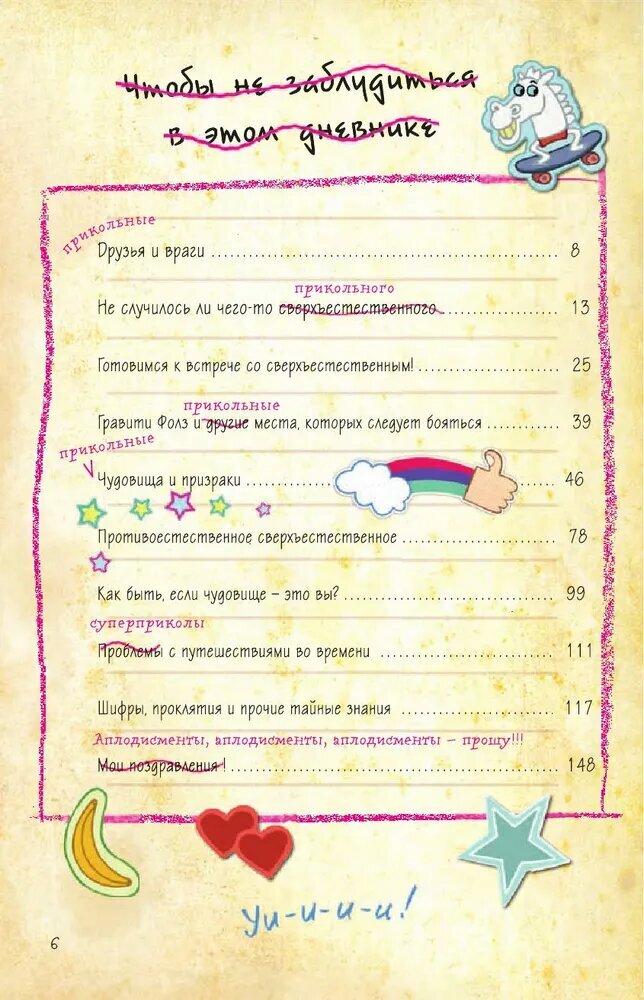 Чтобы не заблудиться
в этом дневнике
прикольные
Друзья и враги 8
прикольного
Не случилось ли чего-то сверхъестественного 13
Готовимся к встрече со сверхъестественным! 25
прикольные
Гравити Фолз и другие места, которых следует бояться 39
прикольные
Чудовища и призраки 46
Противоестественное сверхъестественное 78
Как быть, если чудовище – это вы? 99
суперприколы
Проблемы с путешествиями во времени 111
Шифры, проклятия и прочие тайные знания 117
Аплодисменты, аплодисменты, аплодисменты – прошу!!!
Мои поздравления! 148
Уи-и-и-и!
6